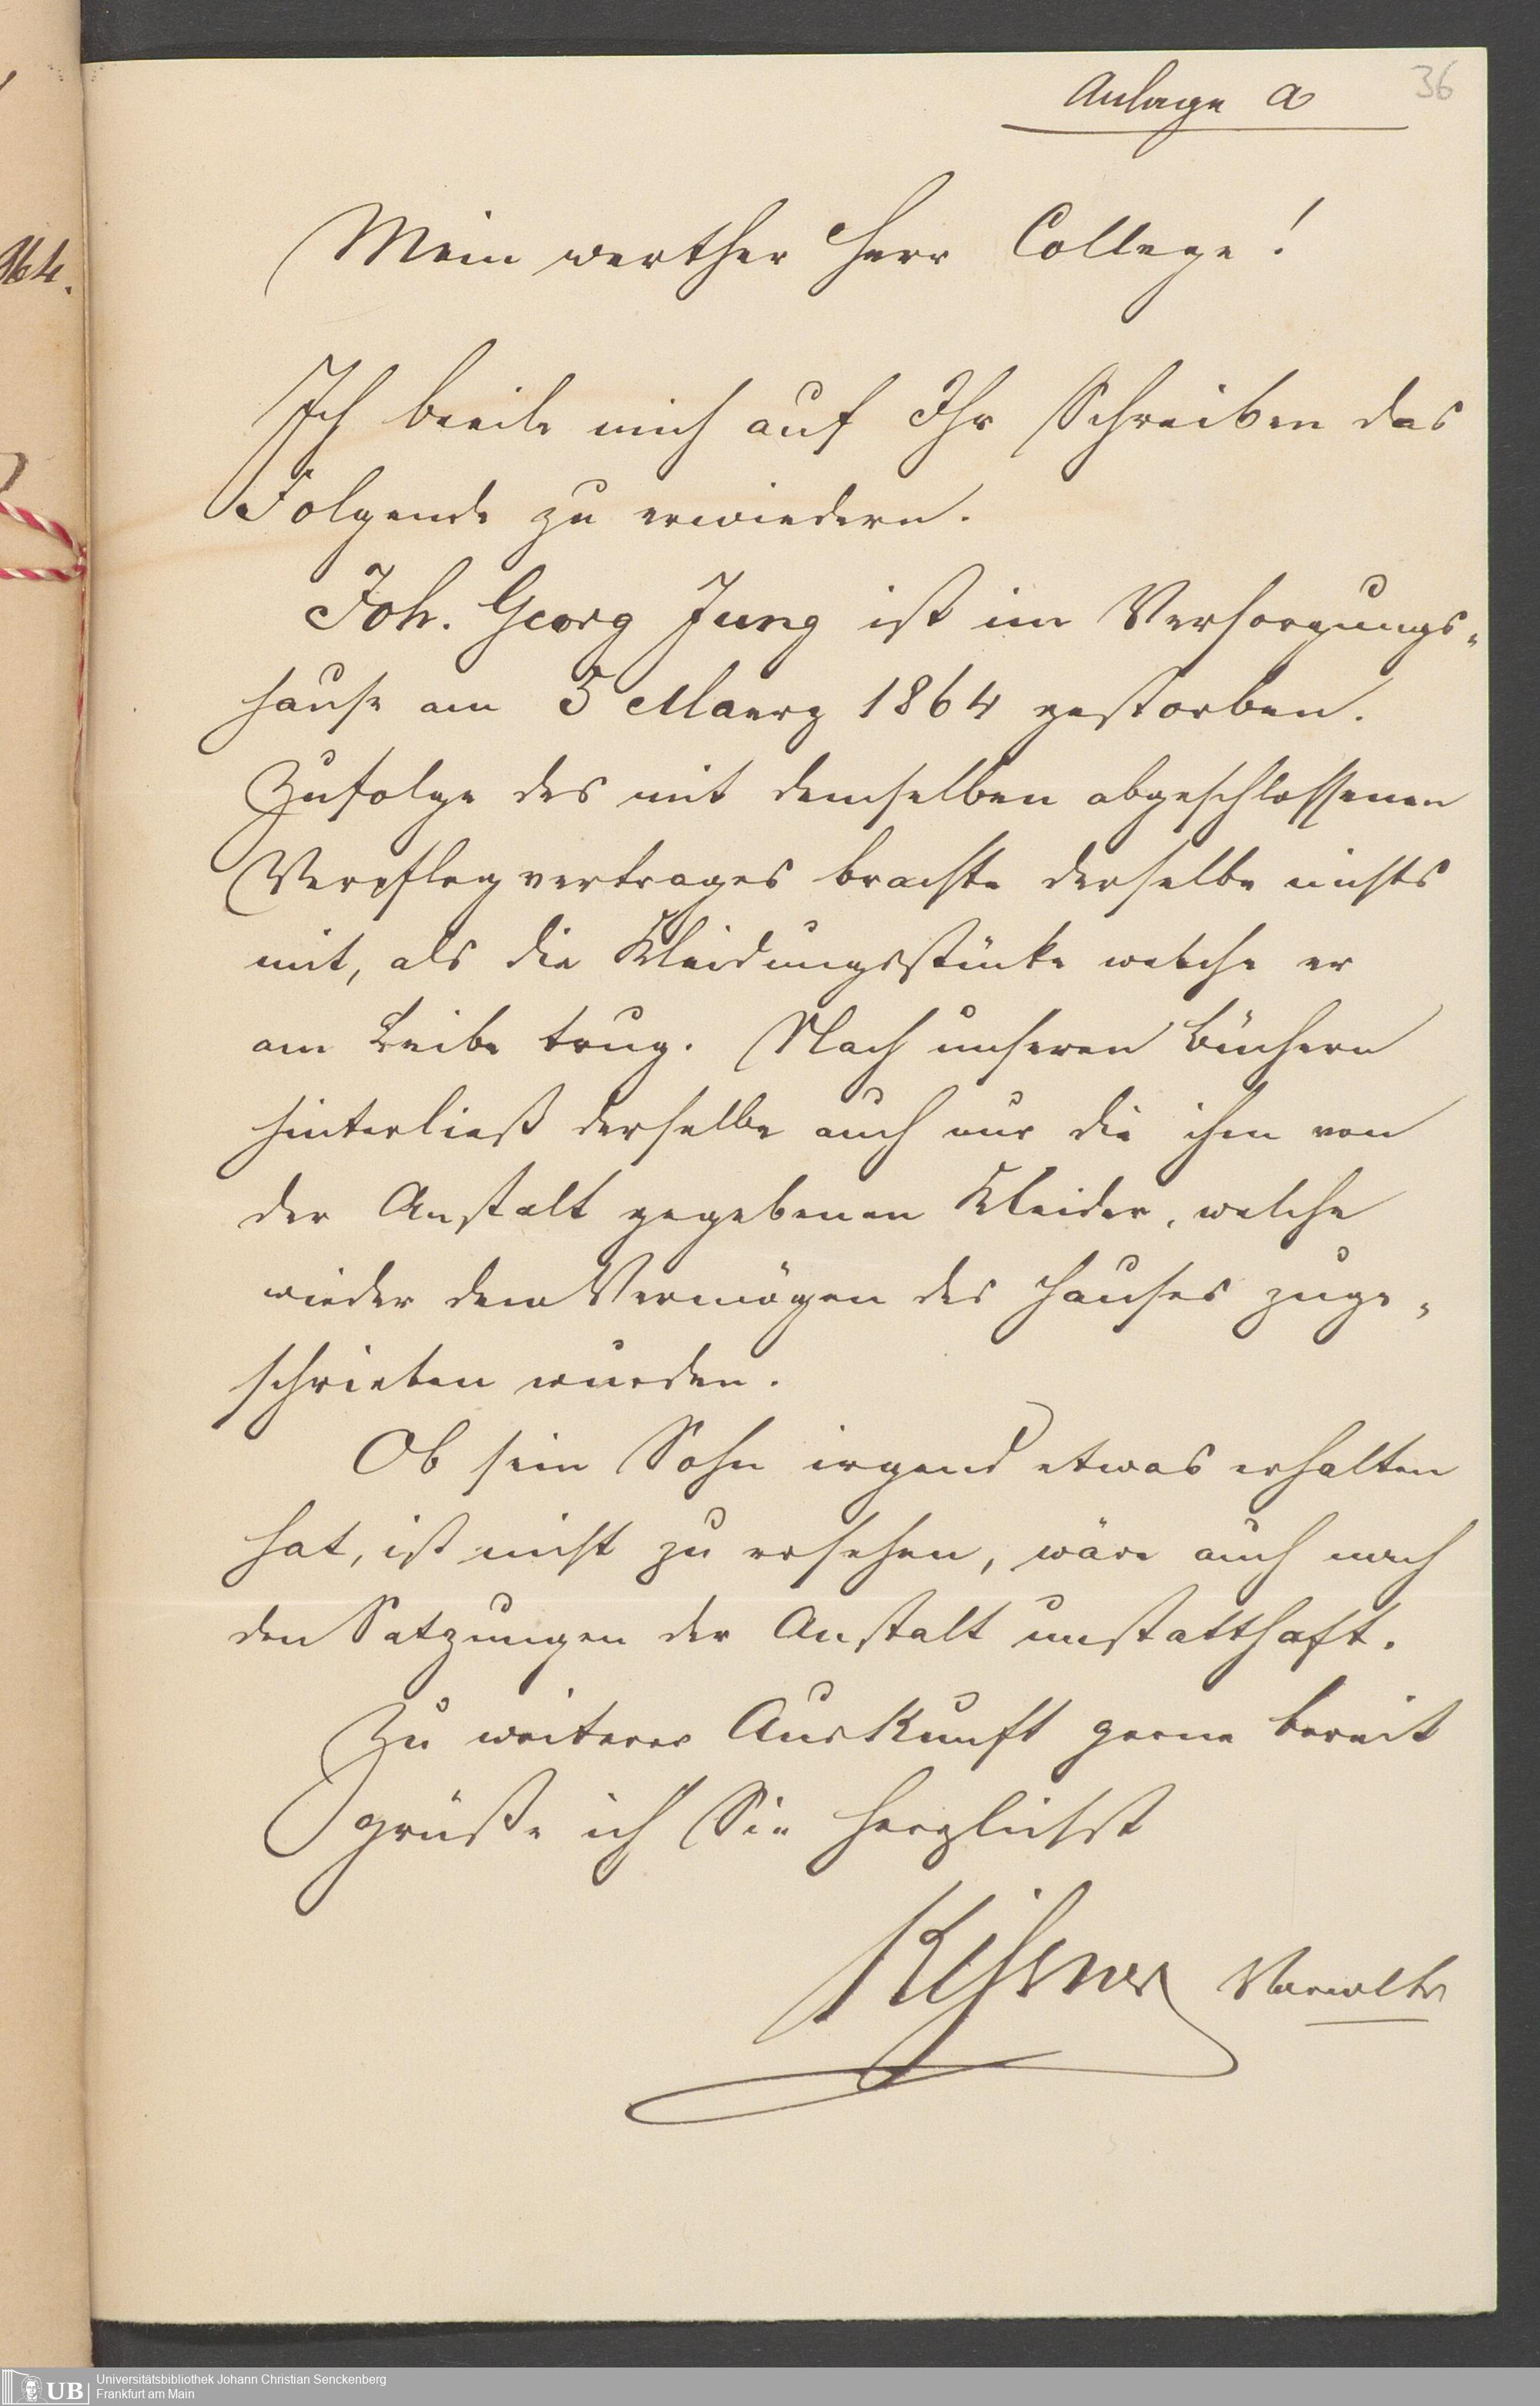 Anlage a
36
Mein werther Herr College!
Ich beeile mich auf Ihr Schreiben das
Folgende zu erwiedern.
Joh. Georg Jung ist im Versorgungs-
hause am 5 Maerz 1864 gestorben.
Zufolge des mit demselben abgeschlossenen
Verpflegvertrages brachte derselbe nichts
mit, als die Kleidungsstücke welche er
am Leibe trug. Nach unseren Büchern
hinterließ derselbe auch nur die ihm von
der Anstalt gegebenen Kleider, welche
wieder dem Vermögen des Hauses zuge-
schrieben wurden.
Ob sein Sohn irgend etwas erhalten
hat, ist nicht zu ersehen, wäre auch nach
den Satzungen der Anstalt unstatthaft.
Zu weiterer Auskunft gerne bereit
grüße ich Sie herzlichst
Verwltr
UB
Universitätsbibliothek Johann Christian Senckenberg
Frankfurt am Main